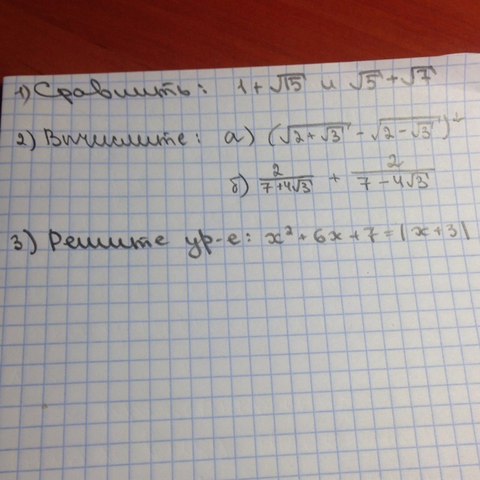 1) Сравнить: 1 + √15 и √5 + √7
2) Вычислите: а) (√(2 + √3) - √(2 - √3))²
б) 2/(7 + 4√3) + 2/(7 - 4√3)
3) Решите ур-е: x² + 6x + 7 = |x + 3|